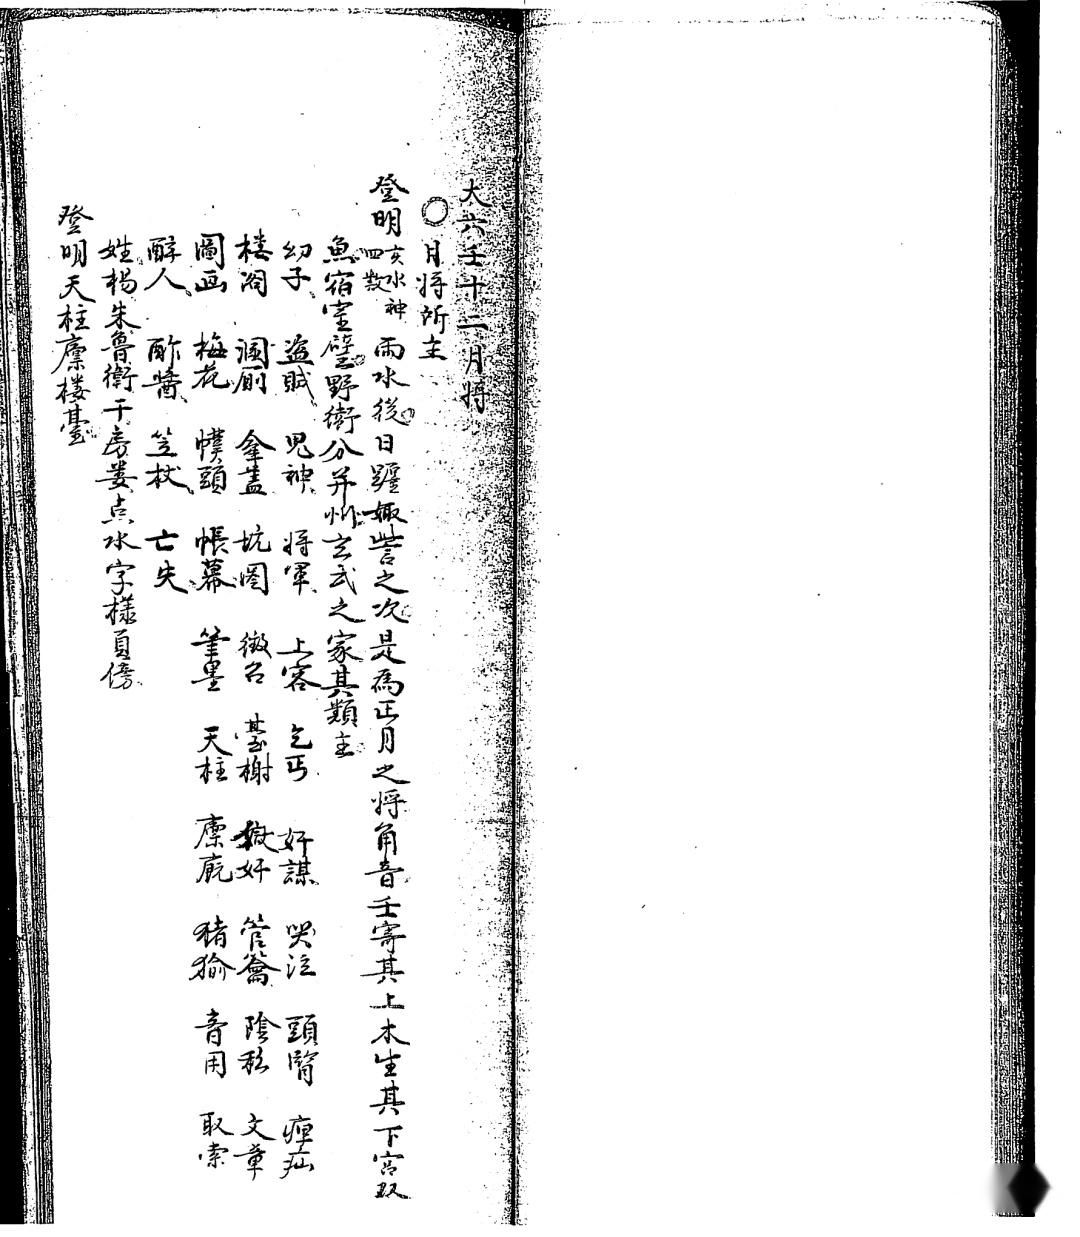 大六壬十二月将
〇月将所主
登明亥水神四数 雨水後日躔娵訾之次是為正月之将角音壬寄其上木生其下宮双
魚宿室璧野衛分并州玄武之家其類主
幼子 盗賊 鬼神 将軍 上客 乞丐 奸謀 哭泣 頭腎 瘴疝
楼阁 溷厠 傘盖 坑圂 徵召 臺榭 奸 管籥 陰私 文章
圖画 梅花 幞頭 帳幕 筆墨 天柱 廪廐 猪㺄 音用 取索
醉人 酢醬 笠杖 亡失
姓楊朱魯衛于房娄点水字様頁傍
登明天柱廪楼臺